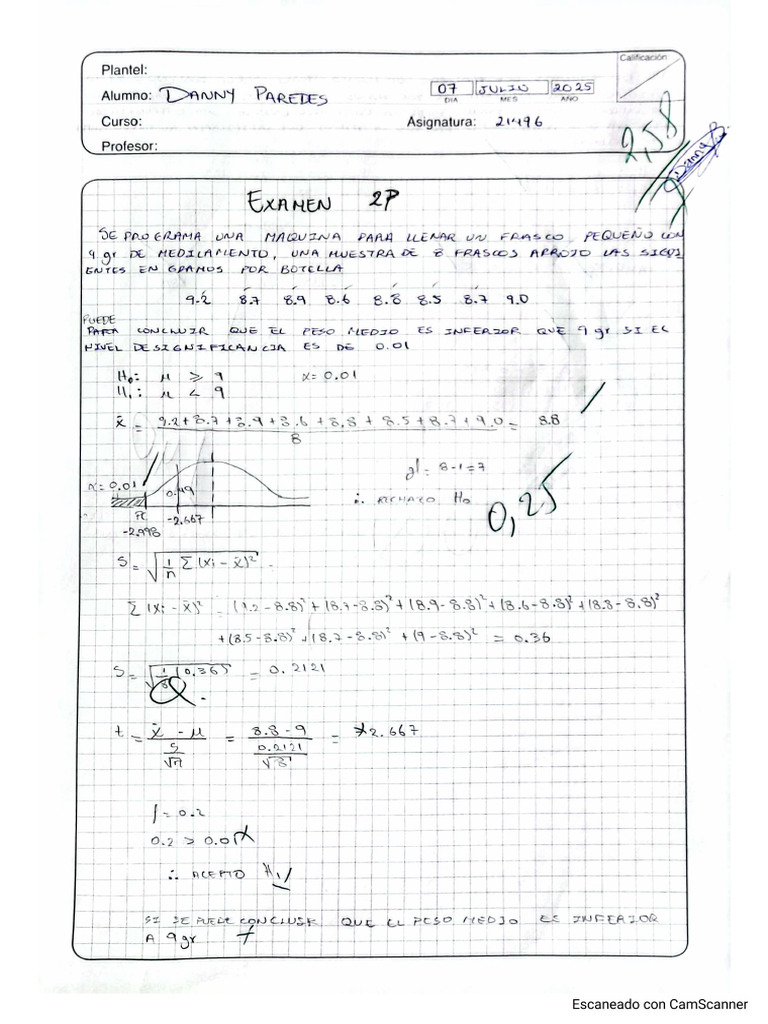 Calificación
Plantel:
Alumno: DANNY PAREDES
07 JULIO 2025
DIA MES AÑO
Curso:
Asignatura: 21496
Profesor:
2,58
Danny
EXAMEN 2P
SE PROGRAMA UNA MAQUINA PARA LLENAR UN FRASCO PEQUEÑO CON
9 gr DE MEDICAMENTO, UNA MUESTRA DE 8 FRASCOS ARROJO LAS SIGUI
ENTES EN GRAMOS POR BOTELLA
9.2 8.7 8.9 8.6 8.8 8.5 8.7 9.0
PUEDE
PARA CONCLUIR QUE EL PESO MEDIO ES INFERIOR QUE 9 gr SI EL
NIVEL DE SIGNIFICANCIA ES DE 0.01
H₀: μ ≥ 9 α= 0.01
H₁: μ < 9
x̄ = 9.2+8.7+8.9+8.6+8.8+8.5+8.7+9.0 / 8 = 8.8
gl = 8-1=7
α= 0.01 0.49
∴ RECHAZO H₀
0,25
-2.667
-2.998
S = √(1/n Σ(xi - x̄)²
Σ(xi - x̄)² = (9.2-8.8)²+(8.7-8.8)²+(8.9-8.8)²+(8.6-8.8)²+(8.8-8.8)²
+(8.5-8.8)²+(8.7-8.8)²+(9-8.8)² = 0.36
S = √(1/8(0.36) = 0.2121
t = x̄ - μ / S/√n = 8.8-9 / 0.2121/√8 = -2.667
= 0.2
0.2 > 0.01
∴ ACEPTO H₁
SI SE PUEDE CONCLUIR QUE EL PESO MEDIO ES INFERIOR
A 9gr
Escaneado con CamScanner